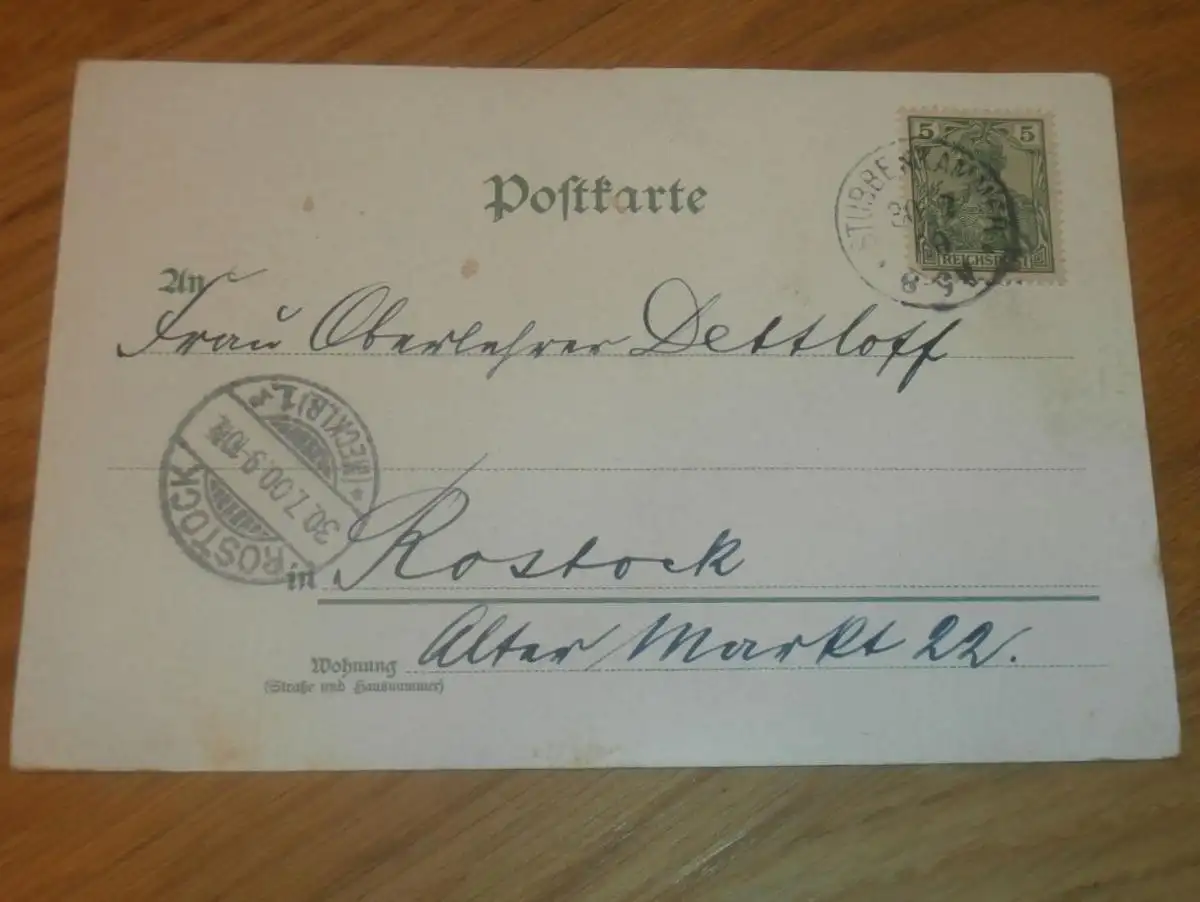 Postkarte
5 5
REICHSPOST
STUBBENKAMMER
8-9 V
An
Frau Oberlehrer Dettloff
ROSTOCK
30.7.00.9-10N.
(MECKLB)1.
in Rostock
Wohnung Alter Markt 22.
(Straße und Hausnummer)